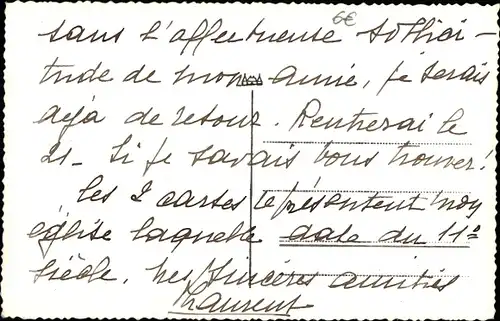 6€
sans l'affectueuse sollici-
tude de mon amie, je serais
déjà de retour. Rentrerai le
21- Si je savais vous trouver!
les 2 cartes représentent mon
église laquelle date du 11e
siècle. Mes sincères amitiés
Laurent